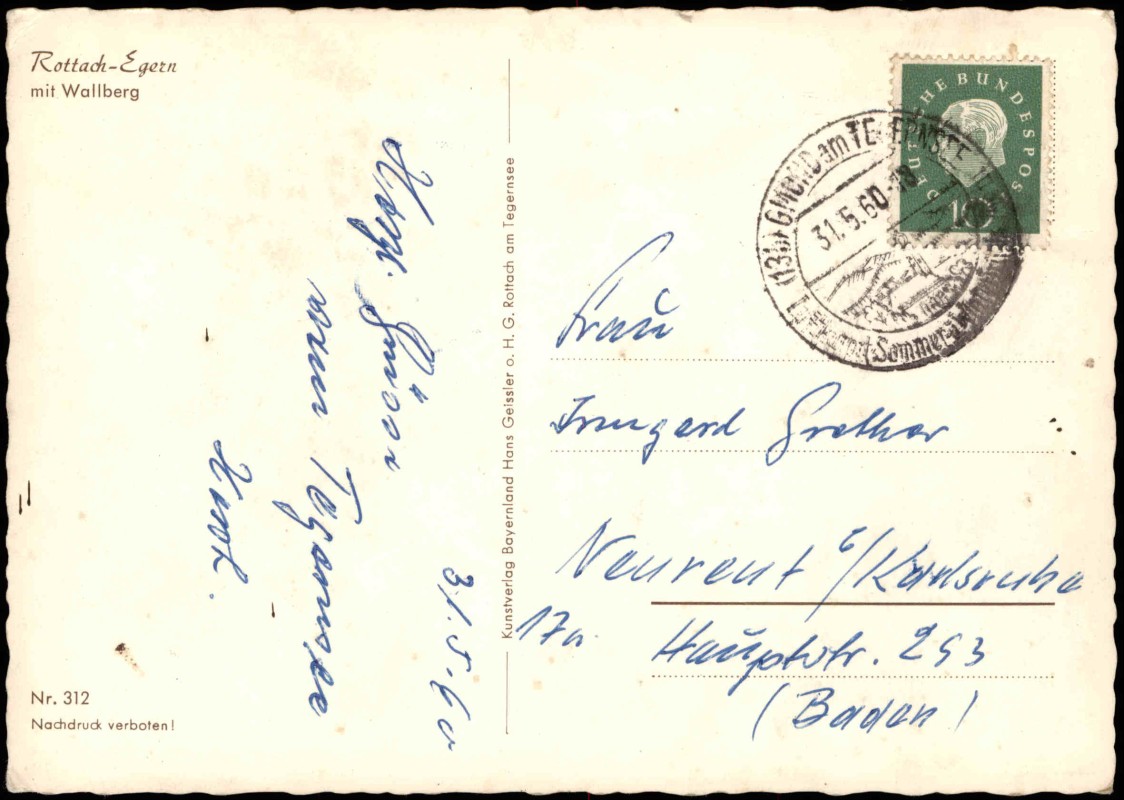 Rottach-Egern
mit Wallberg
31.5.60
Herzl. Grüsse
vom Tegernsee
Horst.
Nr. 312
Nachdruck verboten!
Kunstverlag Bayernland Hans Geissler o. H. G. Rottach am Tegernsee
DEUTSCHE BUNDESPOST
10
(13b) GMUND am TEGERNSEE
31.5.60-18
Sommer-
Frau
Irmgard Grether
Neureut b/Karlsruhe
17a Hauptstr. 253
(Baden)